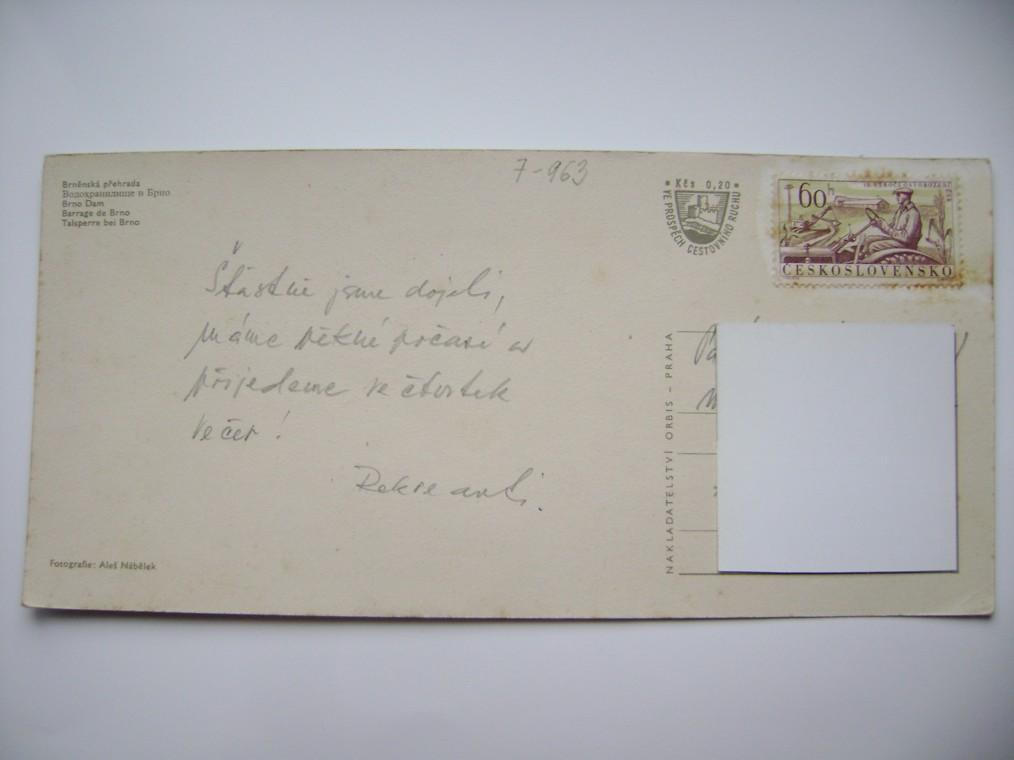 7-963
Brněnská přehrada
Водохранилище в Брно
Brno Dam
Barrage de Brno
Talsperre bei Brno
Kčs 0,20
VE PROSPĚCH CESTOVNÍHO RUCHU
60h
ČESKOSLOVENSKO
Šťastně jsme dojeli,
máme pěkné počasí a
přijedeme ve čtvrtek
večer!
Rekreanti.
NAKLADATELSTVÍ ORBIS – PRAHA
Fotografie: Aleš Nábělek